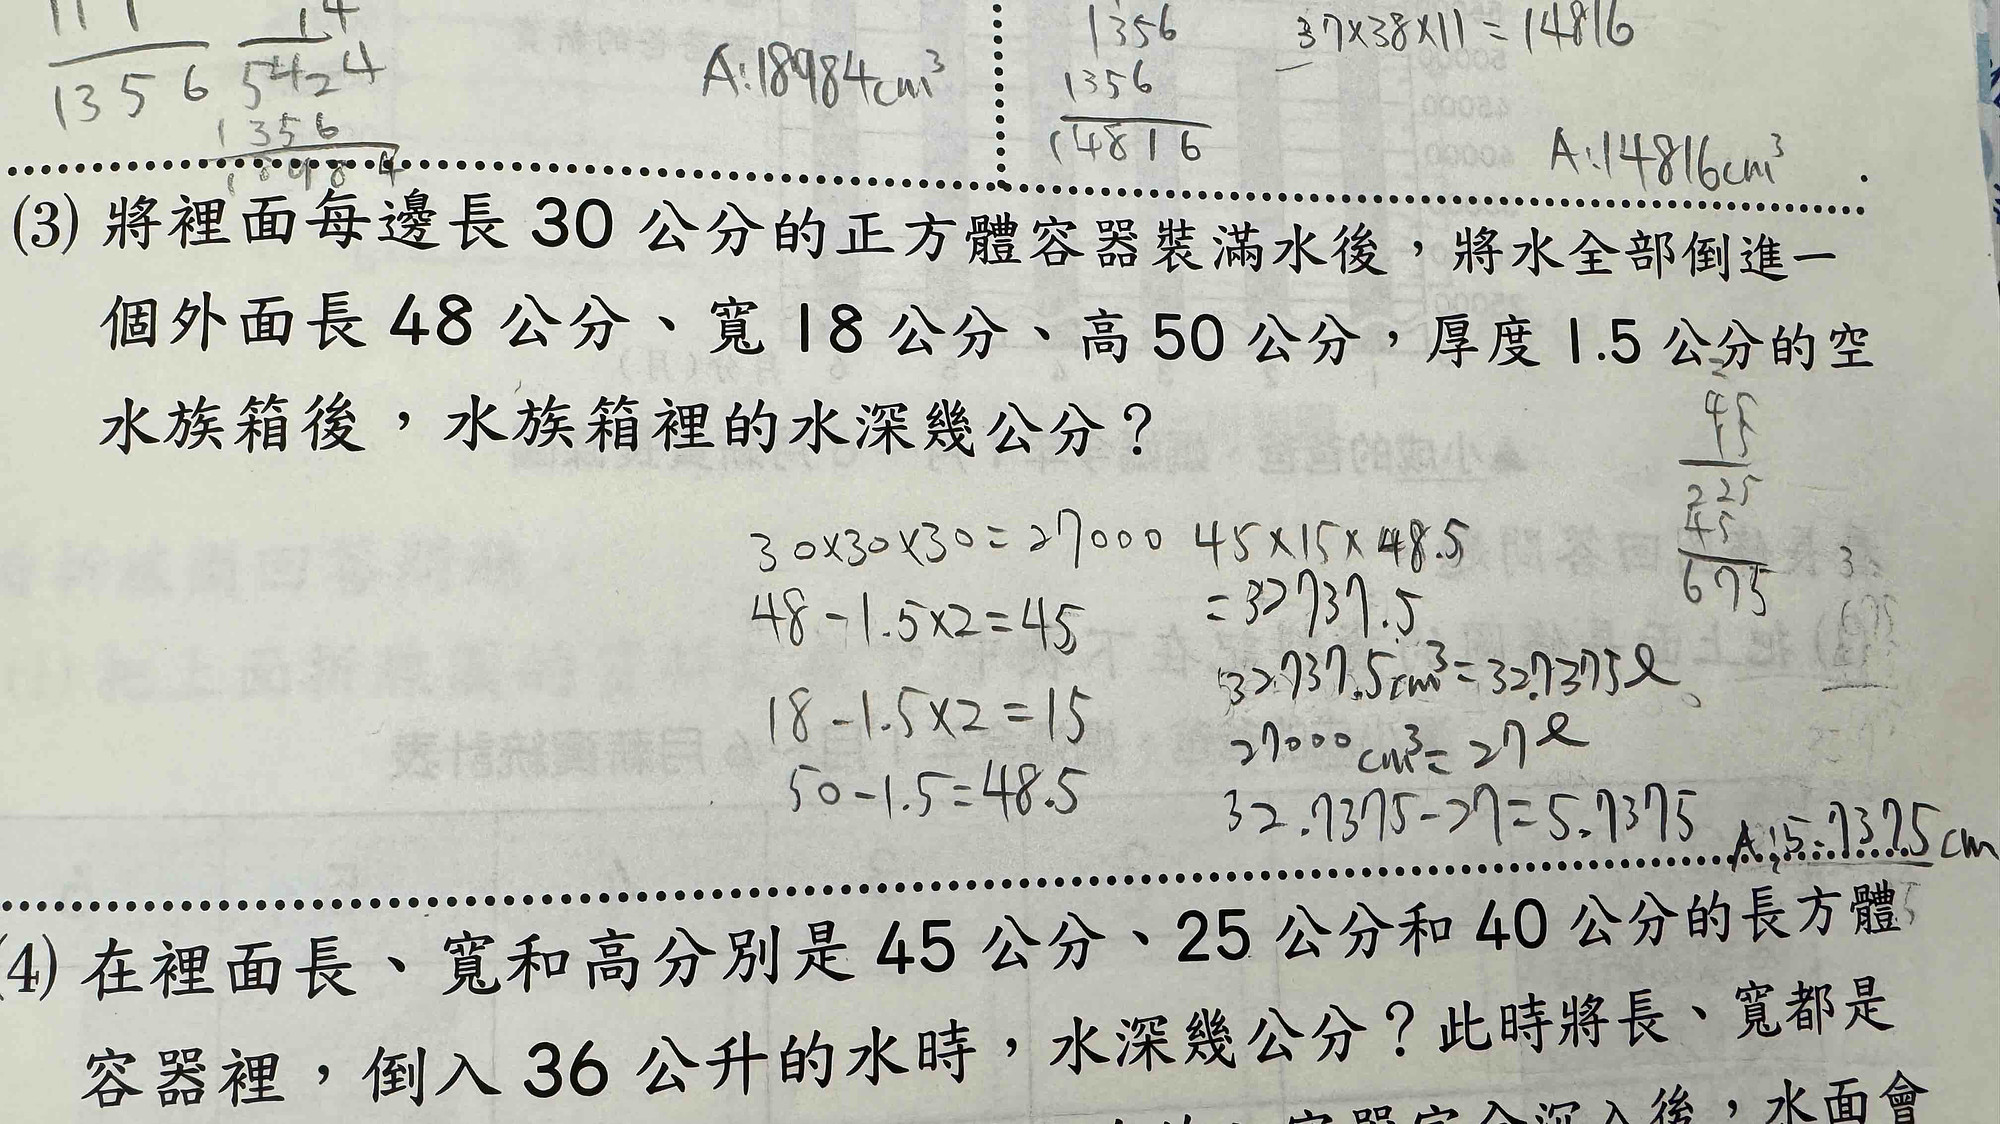 1356
14
5424
1356
18984
A:18984cm³
1356
1356
14816
37×38×11=14816
A:14816cm³
(3) 將裡面每邊長 30 公分的正方體容器裝滿水後，將水全部倒進一
個外面長 48 公分、寬 18 公分、高 50 公分，厚度 1.5 公分的空
水族箱後，水族箱裡的水深幾公分？
45
15
225
45
675
30×30×30=27000
48-1.5×2=45
18-1.5×2=15
50-1.5=48.5
45×15×48.5
=32737.5
32737.5cm³=32.7375ℓ
27000cm³=27ℓ
32.7375-27=5.7375
A:5.7375cm
(4) 在裡面長、寬和高分別是 45 公分、25 公分和 40 公分的長方體
容器裡，倒入 36 公升的水時，水深幾公分？此時將長、寬都是
容器完全沉入後，水面會